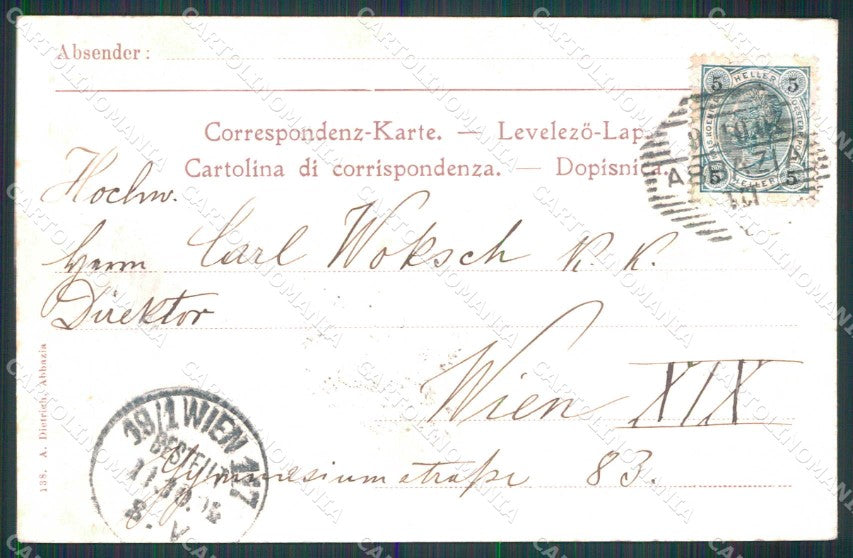 Absender:
5 HELLER 5
5 HELLER 5
Correspondenz-Karte. — Levelező-Lap.
Cartolina di corrispondenza. — Dopisnica.
Hochw.
Herrn Carl Woksch K. K.
Direktor
Wien XIX
Gymnasiumstraße 83.
19/1 WIEN 117
BESTELLT
138. A. Dietrich, Abbazia
CARTOLINOMANIA